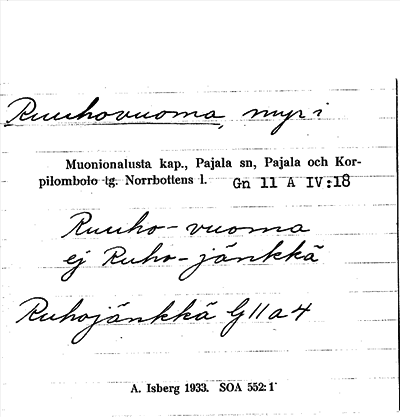 Ruuhovuoma, myr i
Muonionalusta kap., Pajala sn, Pajala och Kor-
pilombolo tg. Norrbottens l. Gn 11 A IV:18
Ruuho-vuoma
ej Ruho-jänkkä
Ruhojänkkä G 11 a 4
A. Isberg 1933. SOA 552:1